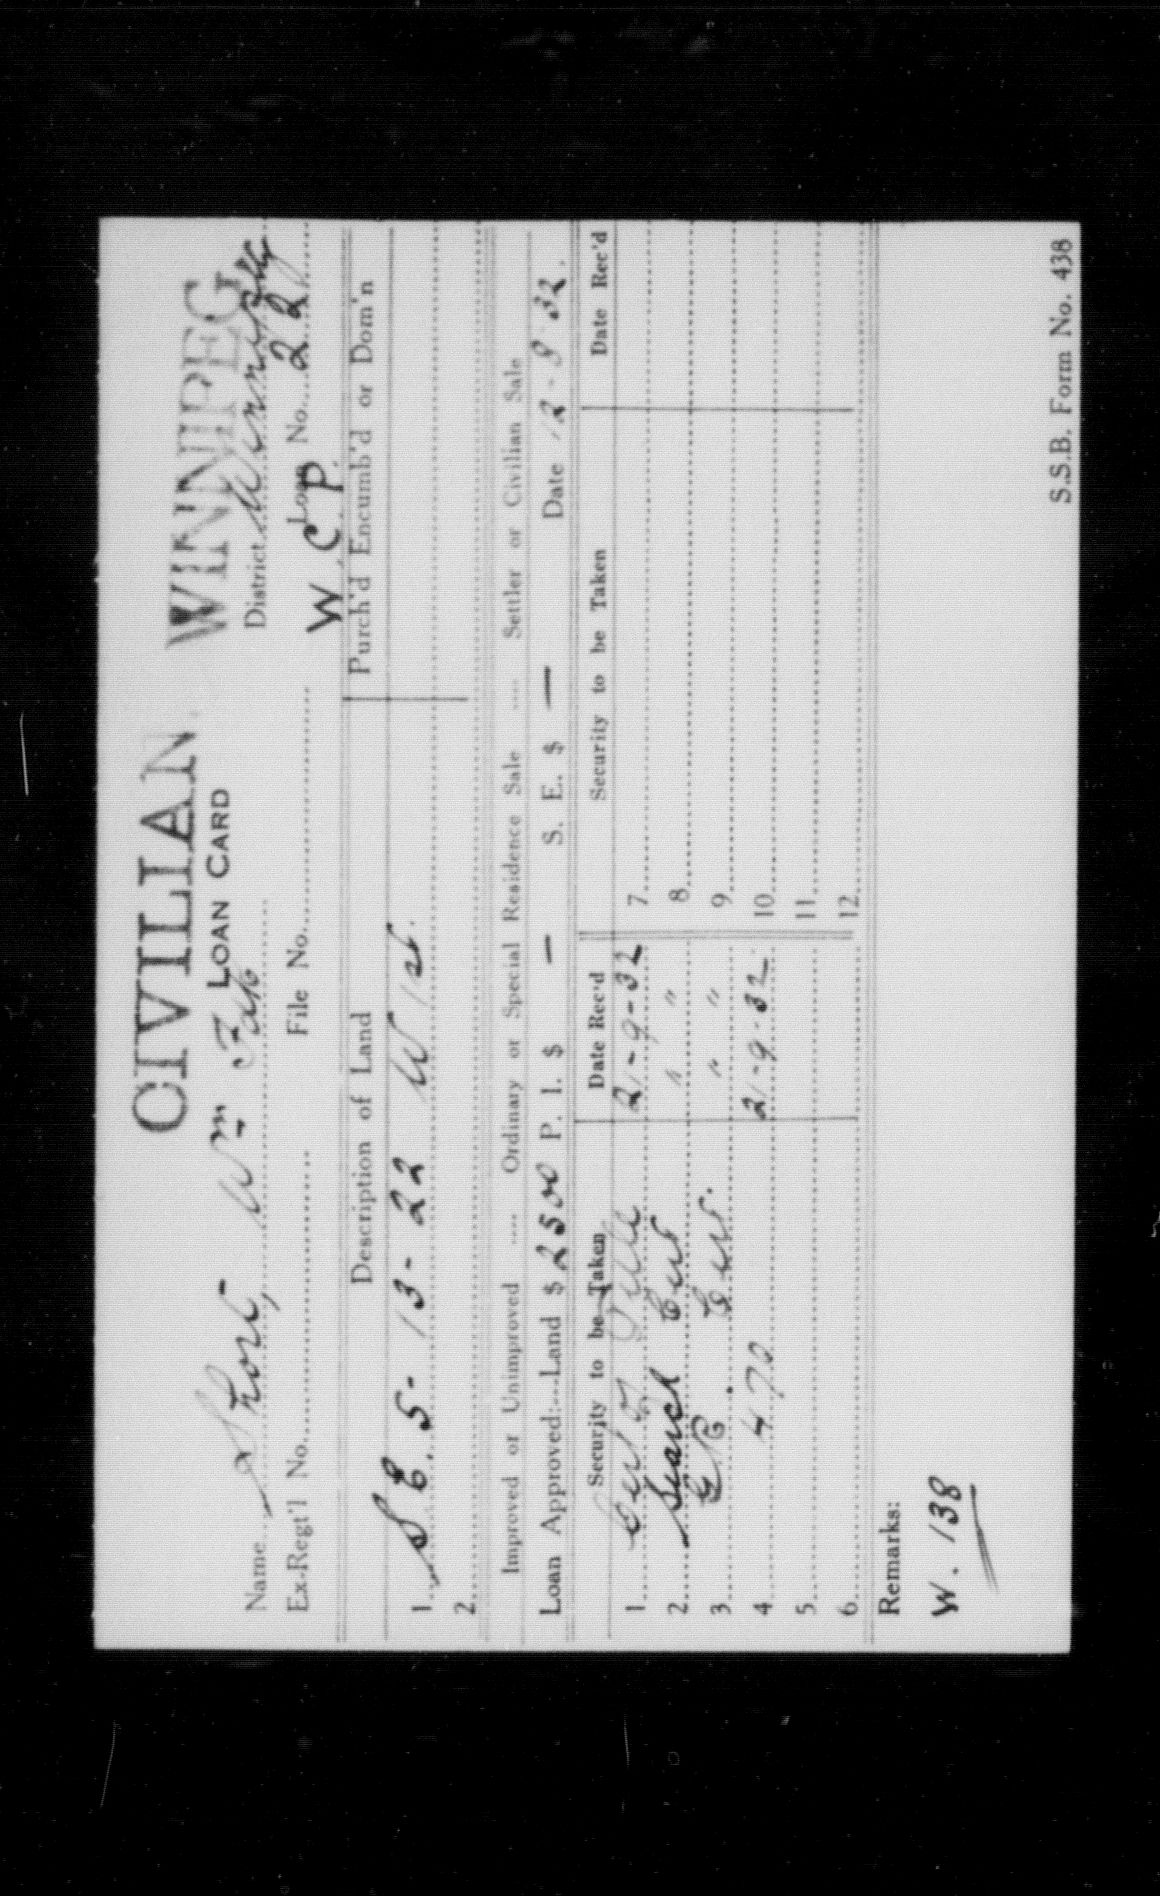 CIVILIAN WINNIPEG
LOAN CARD
Name Short, Wm District Winnipeg
Ex-Regt'l No. File No. Loan No. 227
W.C.P.
Description of Land Purch'd Encumb'd or Dom'n
1. S E. 5- 13- 22 W 1st.
2.
Improved or Unimproved .... Ordinary or Special Residence Sale .... Settler or Civilian Sale
Loan Approved:---Land $ 2500 P. I. $ — S. E. $ — Date 12-9-32.
Security to be Taken Date Rec'd Security to be Taken Date Rec'd
1. Cert of Title 21-9-32 7.
2. Search Cert " " 8.
3. G.R. Cert. " " 9.
4. 470 21-9-32 10.
5. 11.
6. 12.
Remarks:
W. 138
S.S.B. Form No. 438